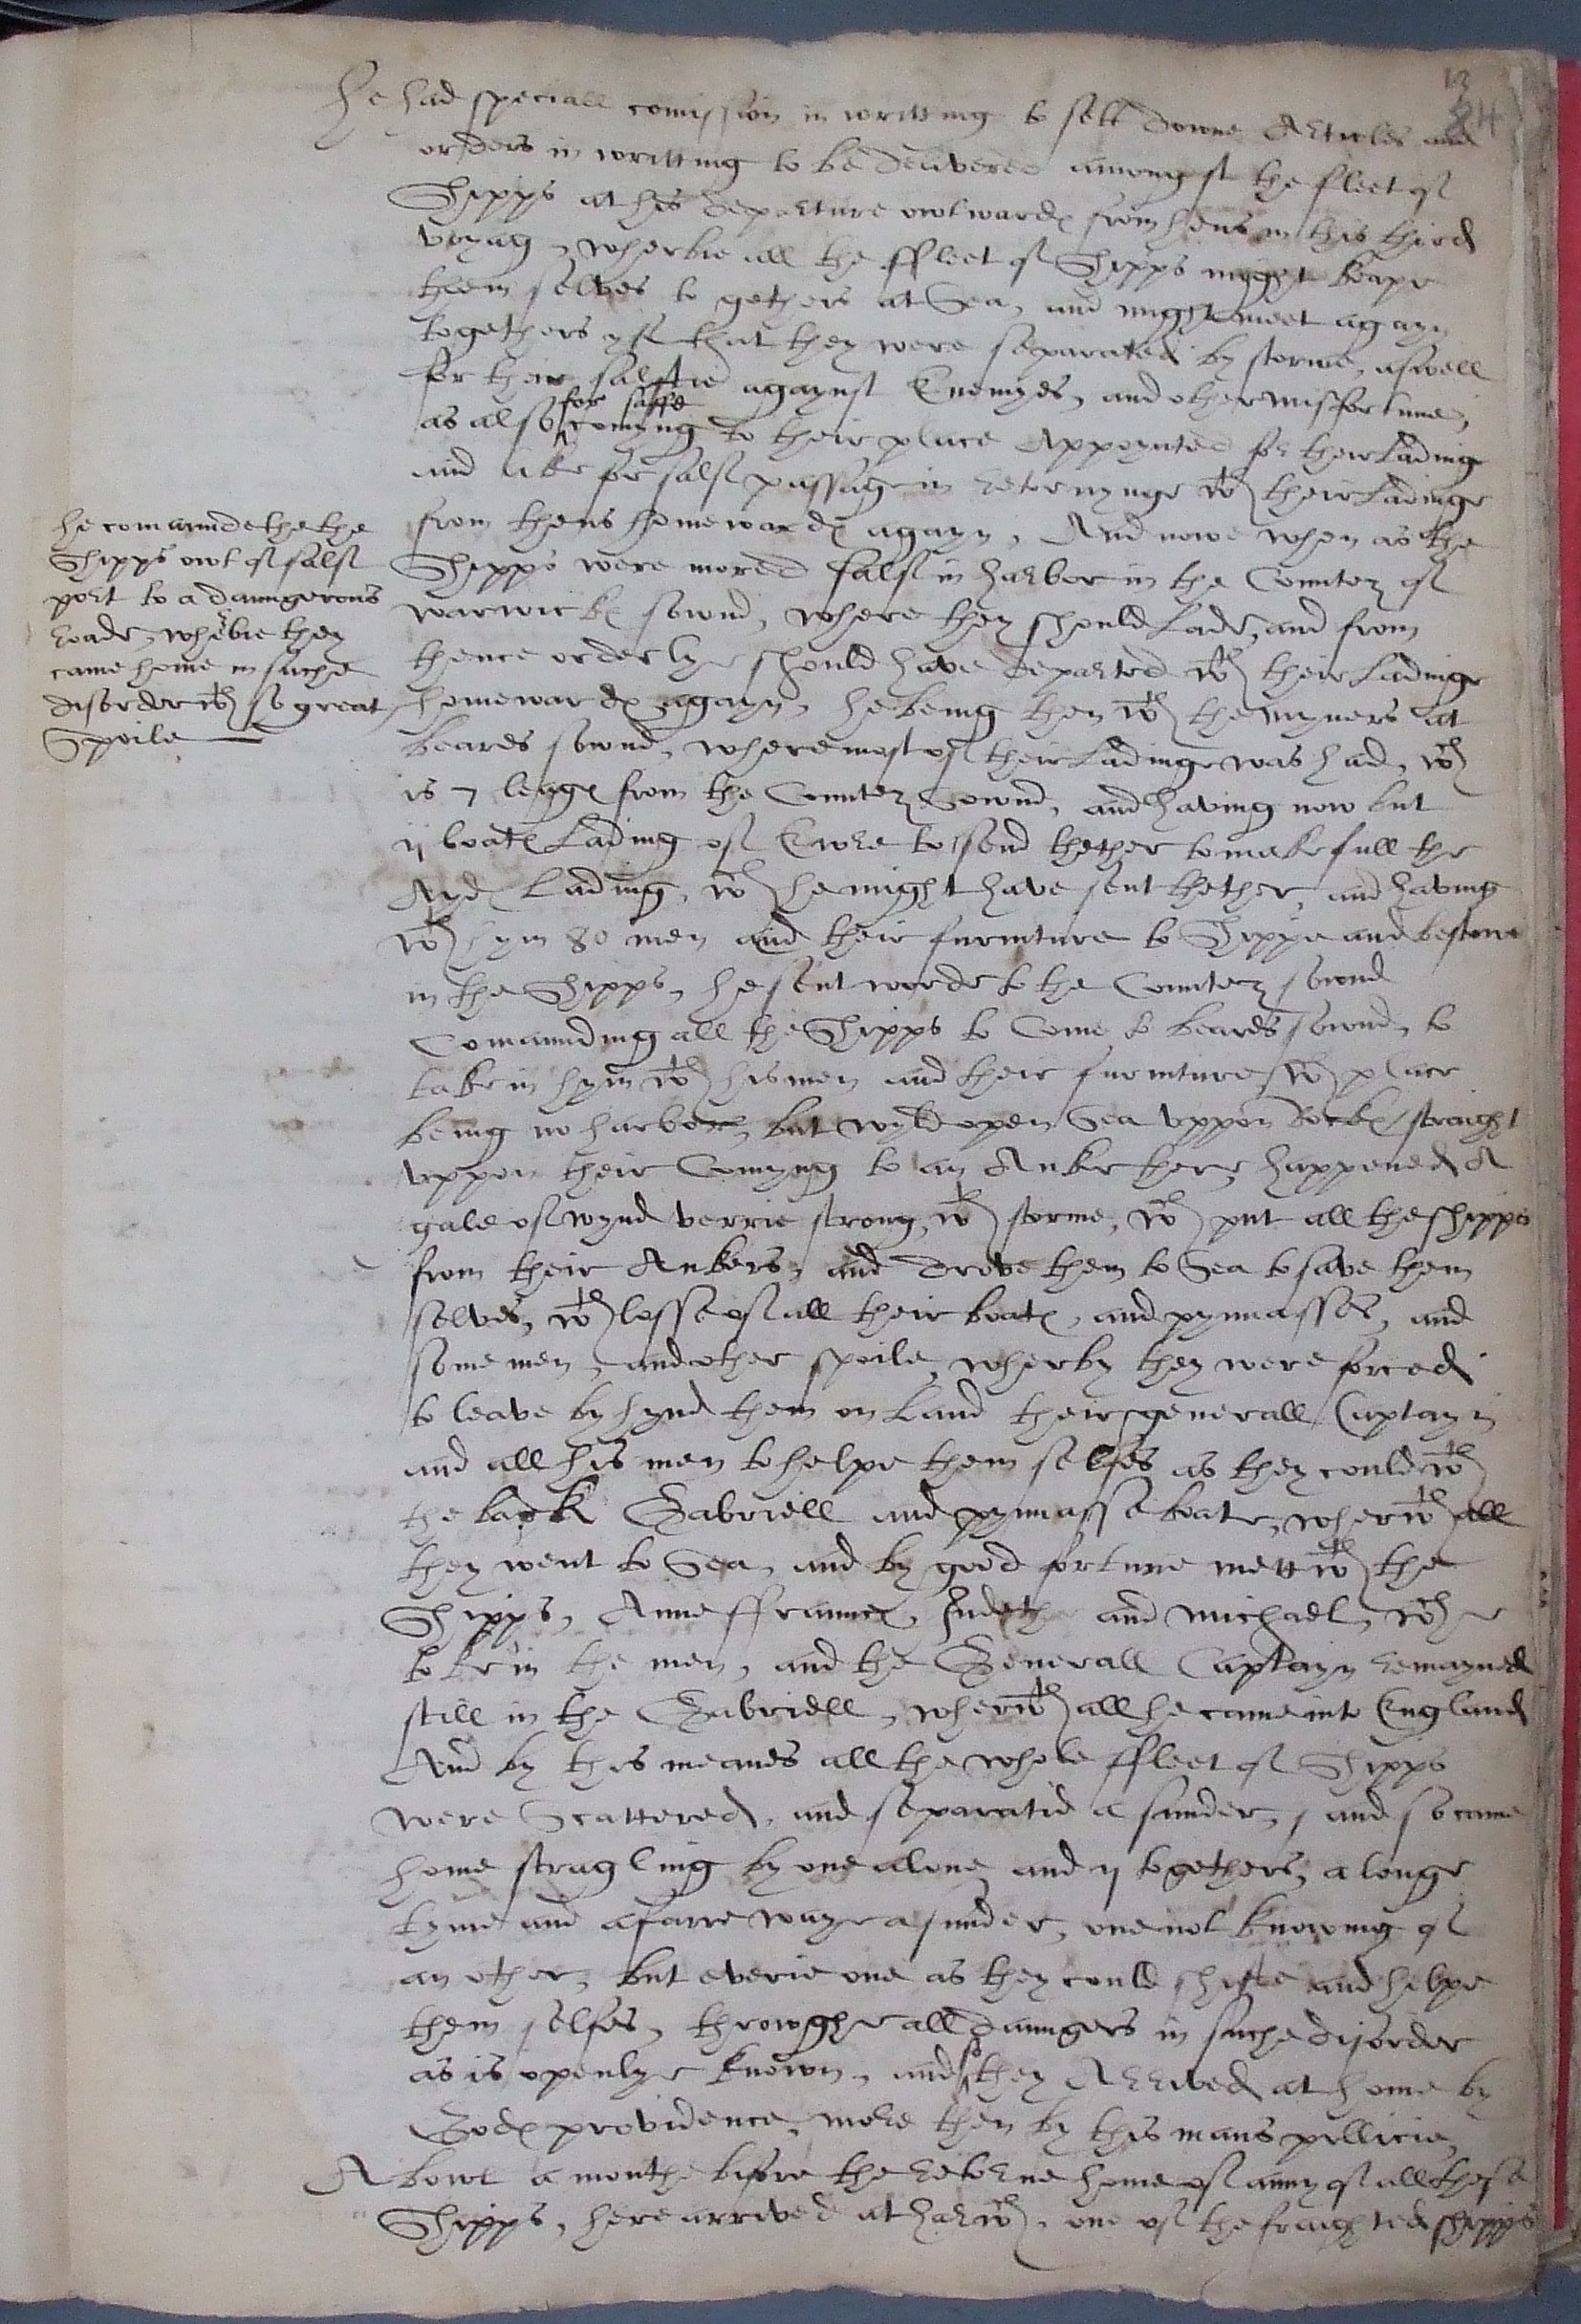 13
84
He had speciall comission in writting to sett downe Articles and
orders in writting to be delivered amongst the fleet of
Shipps at his departure owtwards from hens in this third
voyag, wherbie all the ffleet of Shipps might keape
them selves to gethers at Sea, and might meet agayn
togethers yf that they were separated by storme, aswell
for their salftie agaynst Enemyes, and other misfortune,
as also for saffe comyng to their place Appoynted for their Lading
and like for salf passage in retornynge wth their Ladinge
from thens homewards agayn, And nowe when as the
Shipps were mored salf in harbor in the Countez of
warwicks sownd, where they should Lade, and from
thence orderlye should have departed wth their Ladinge
homewards agayn, he being then wth the myners at
beares sownd, where most of their Ladinge was had, wch
is 7 leags from the Countez Sownd, and having now but
ij boats Lading of Ewre to send thether to make full the
Ayds Lading, wch he might have sent thether, and having
wth hym 80 men and their furniture to Shippe and bestowe
in the Shipps, he sent worde to the Countez sownd
Comaunding all the Shipps to Come to beards sownd, to
take in hym wth his men and their furniture, wch place
being no harbor, but wyld open Sea uppon Rocks, straight
uppon their Comyng to an Anker there, happened A
gale of wynd verrie strong, wth storme, wch put all the shipps
from their Ankers, and drove them to Sea to save them
selves, wth losse of all their boats, and pynnasses, and
some men, and other spoile, wherby they were forced
to leave byhynd them on Land their generall Captayn
and all his men to helpe them selfes as they could wth
the bark Gabriell and pynnasse boate, wherwth all
they went to Sea, and by good fortune mett wth the
Shipps, Anne ffrances, Judeth and Michael, wch
toke in the men, and the Generall Captayn remayned
still in the Gabriell, wherwth all he came into England
And by this meanes all the whole ffleet of Shipps
were Scattered, and separatid a sunder, and so came
home stragling by one alone and ij togethers, a longe
tyme and a farre waye a sunder, one not knowing of
an other, but everie one as they could shifte and helpe
them selfes, throwghe all daungers in suche disorder
as is openlye known, and so they Arrived at home by
Gods providence, more then by this mans pollicie,
Abowt a monthe before the retorne home of anny of all these
Shipps, here arrived at harwch, one of the fraighted shipps
he comaundethe the
Shipps owt of salf
port to a daungerous
Roade, wherbie they
came home in suche
disorder wth so great
Spoile